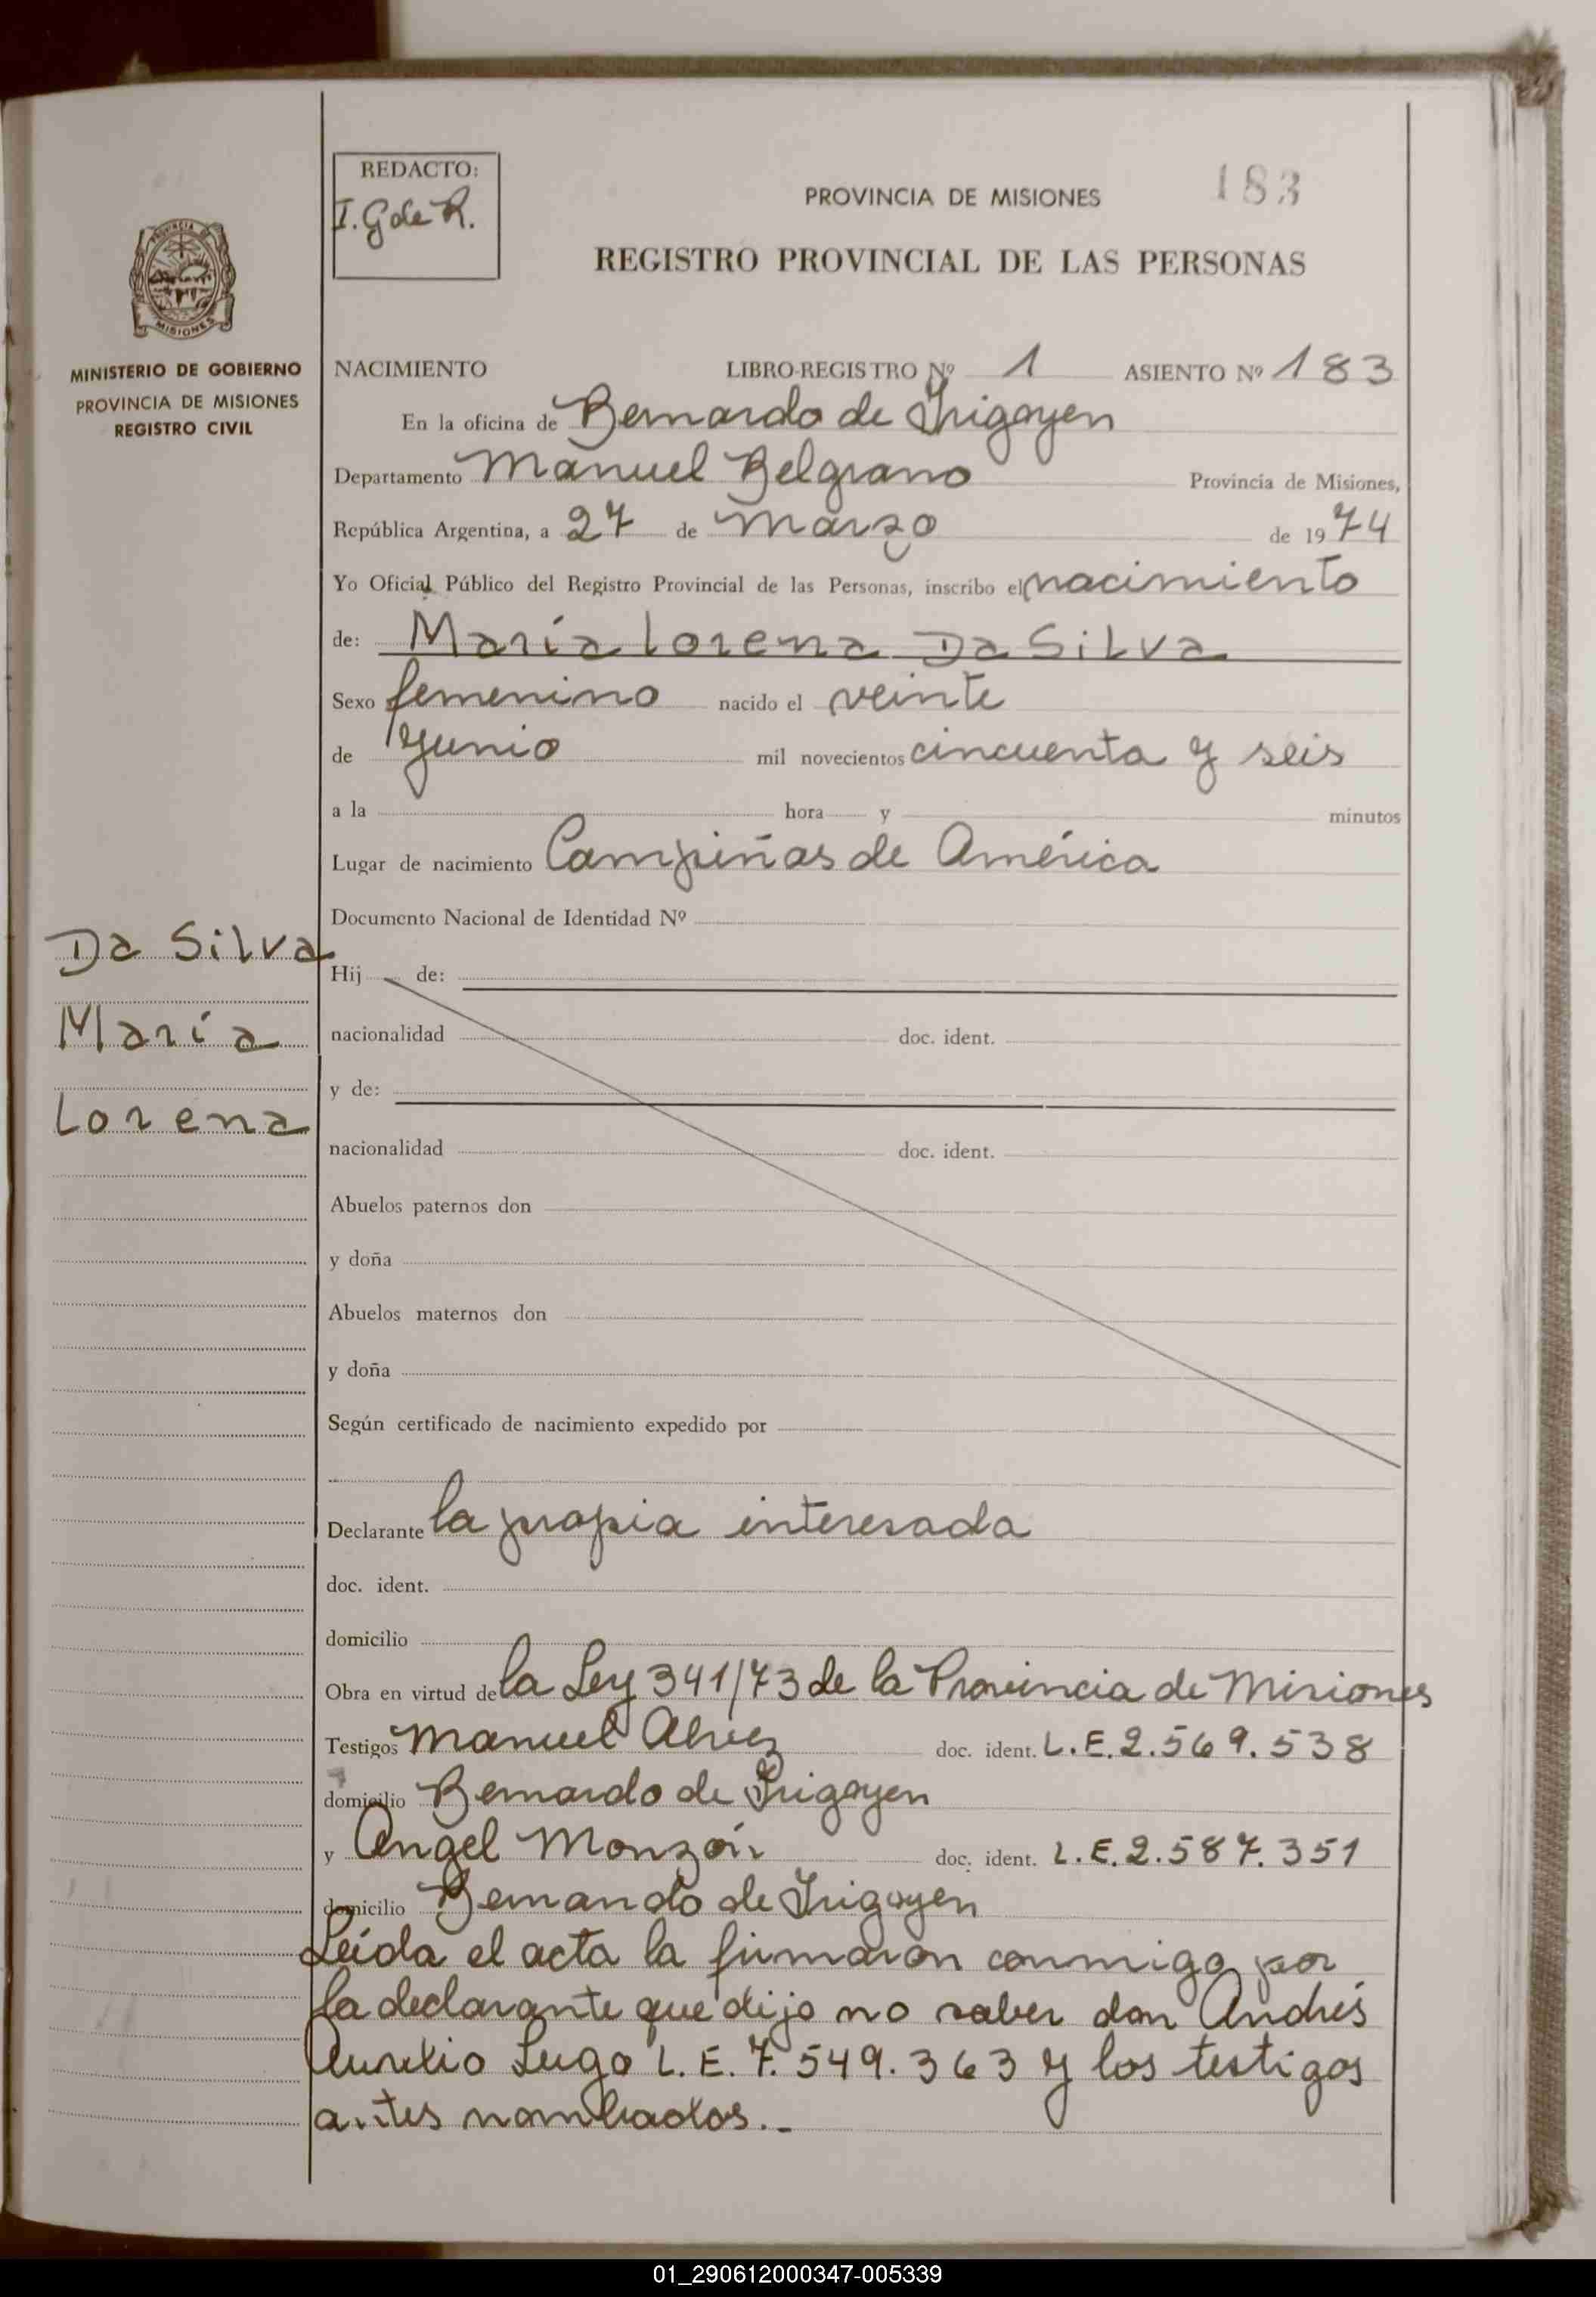 REDACTO:
I. G de R.
PROVINCIA DE MISIONES
183
REGISTRO PROVINCIAL DE LAS PERSONAS
PROVINCIA DE
MISIONES
MINISTERIO DE GOBIERNO
PROVINCIA DE MISIONES
REGISTRO CIVIL
NACIMIENTO LIBRO-REGISTRO Nº 1 ASIENTO Nº 183
En la oficina de Bernardo de Irigoyen
Departamento Manuel Belgrano Provincia de Misiones,
República Argentina, a 27 de Marzo de 1974
Yo Oficial Público del Registro Provincial de las Personas, inscribo el nacimiento
de: María Lorena Da Silva
Sexo femenino nacido el veinte
de Junio mil novecientos cincuenta y seis
a la hora y minutos
Lugar de nacimiento Campiñas de América
Documento Nacional de Identidad Nº
Da Silva
María
Lorena
Hij de:
nacionalidad doc. ident.
y de:
nacionalidad doc. ident.
Abuelos paternos don
y doña
Abuelos maternos don
y doña
Según certificado de nacimiento expedido por
Declarante la propia interesada
doc. ident.
domicilio
Obra en virtud de la Ley 341/73 de la Provincia de Misiones
Testigos Manuel Alvez doc. ident. L.E. 2.569.538
domicilio Bernardo de Irigoyen
y Angel Monzón doc. ident. L.E. 2.587.351
domicilio Bernardo de Irigoyen
Leída el acta la firmaron conmigo por
la declarante que dijo no saber don Andrés
Aurelio Lugo L.E. 7.549.363 y los testigos
antes nombrados.-
01_290612000347-005339